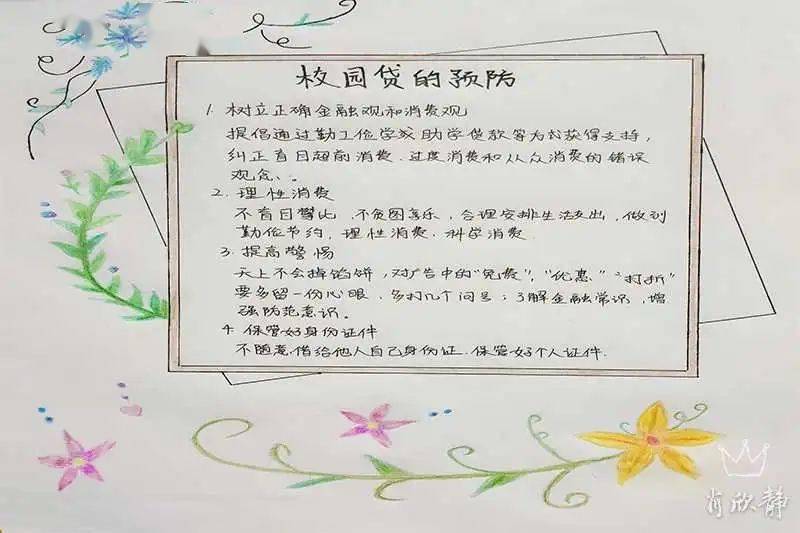 校园贷的预防
1. 树立正确金融观和消费观
提倡通过勤工俭学或助学贷款等方式获得支持,
纠正盲目超前消费、过度消费和从众消费的错误
观念、。
2. 理性消费
不盲目攀比、不贪图享乐,合理安排生活支出,做到
勤俭节约、理性消费、科学消费.
3. 提高警惕
天上不会掉馅饼,对广告中的“免费”,“优惠”“打折”
要多留一份心眼,多打几个问号;了解金融常识,增
强防范意识。
4. 保管好身份证件
不随意借给他人自己身份证、保管好个人证件.
肖欣静